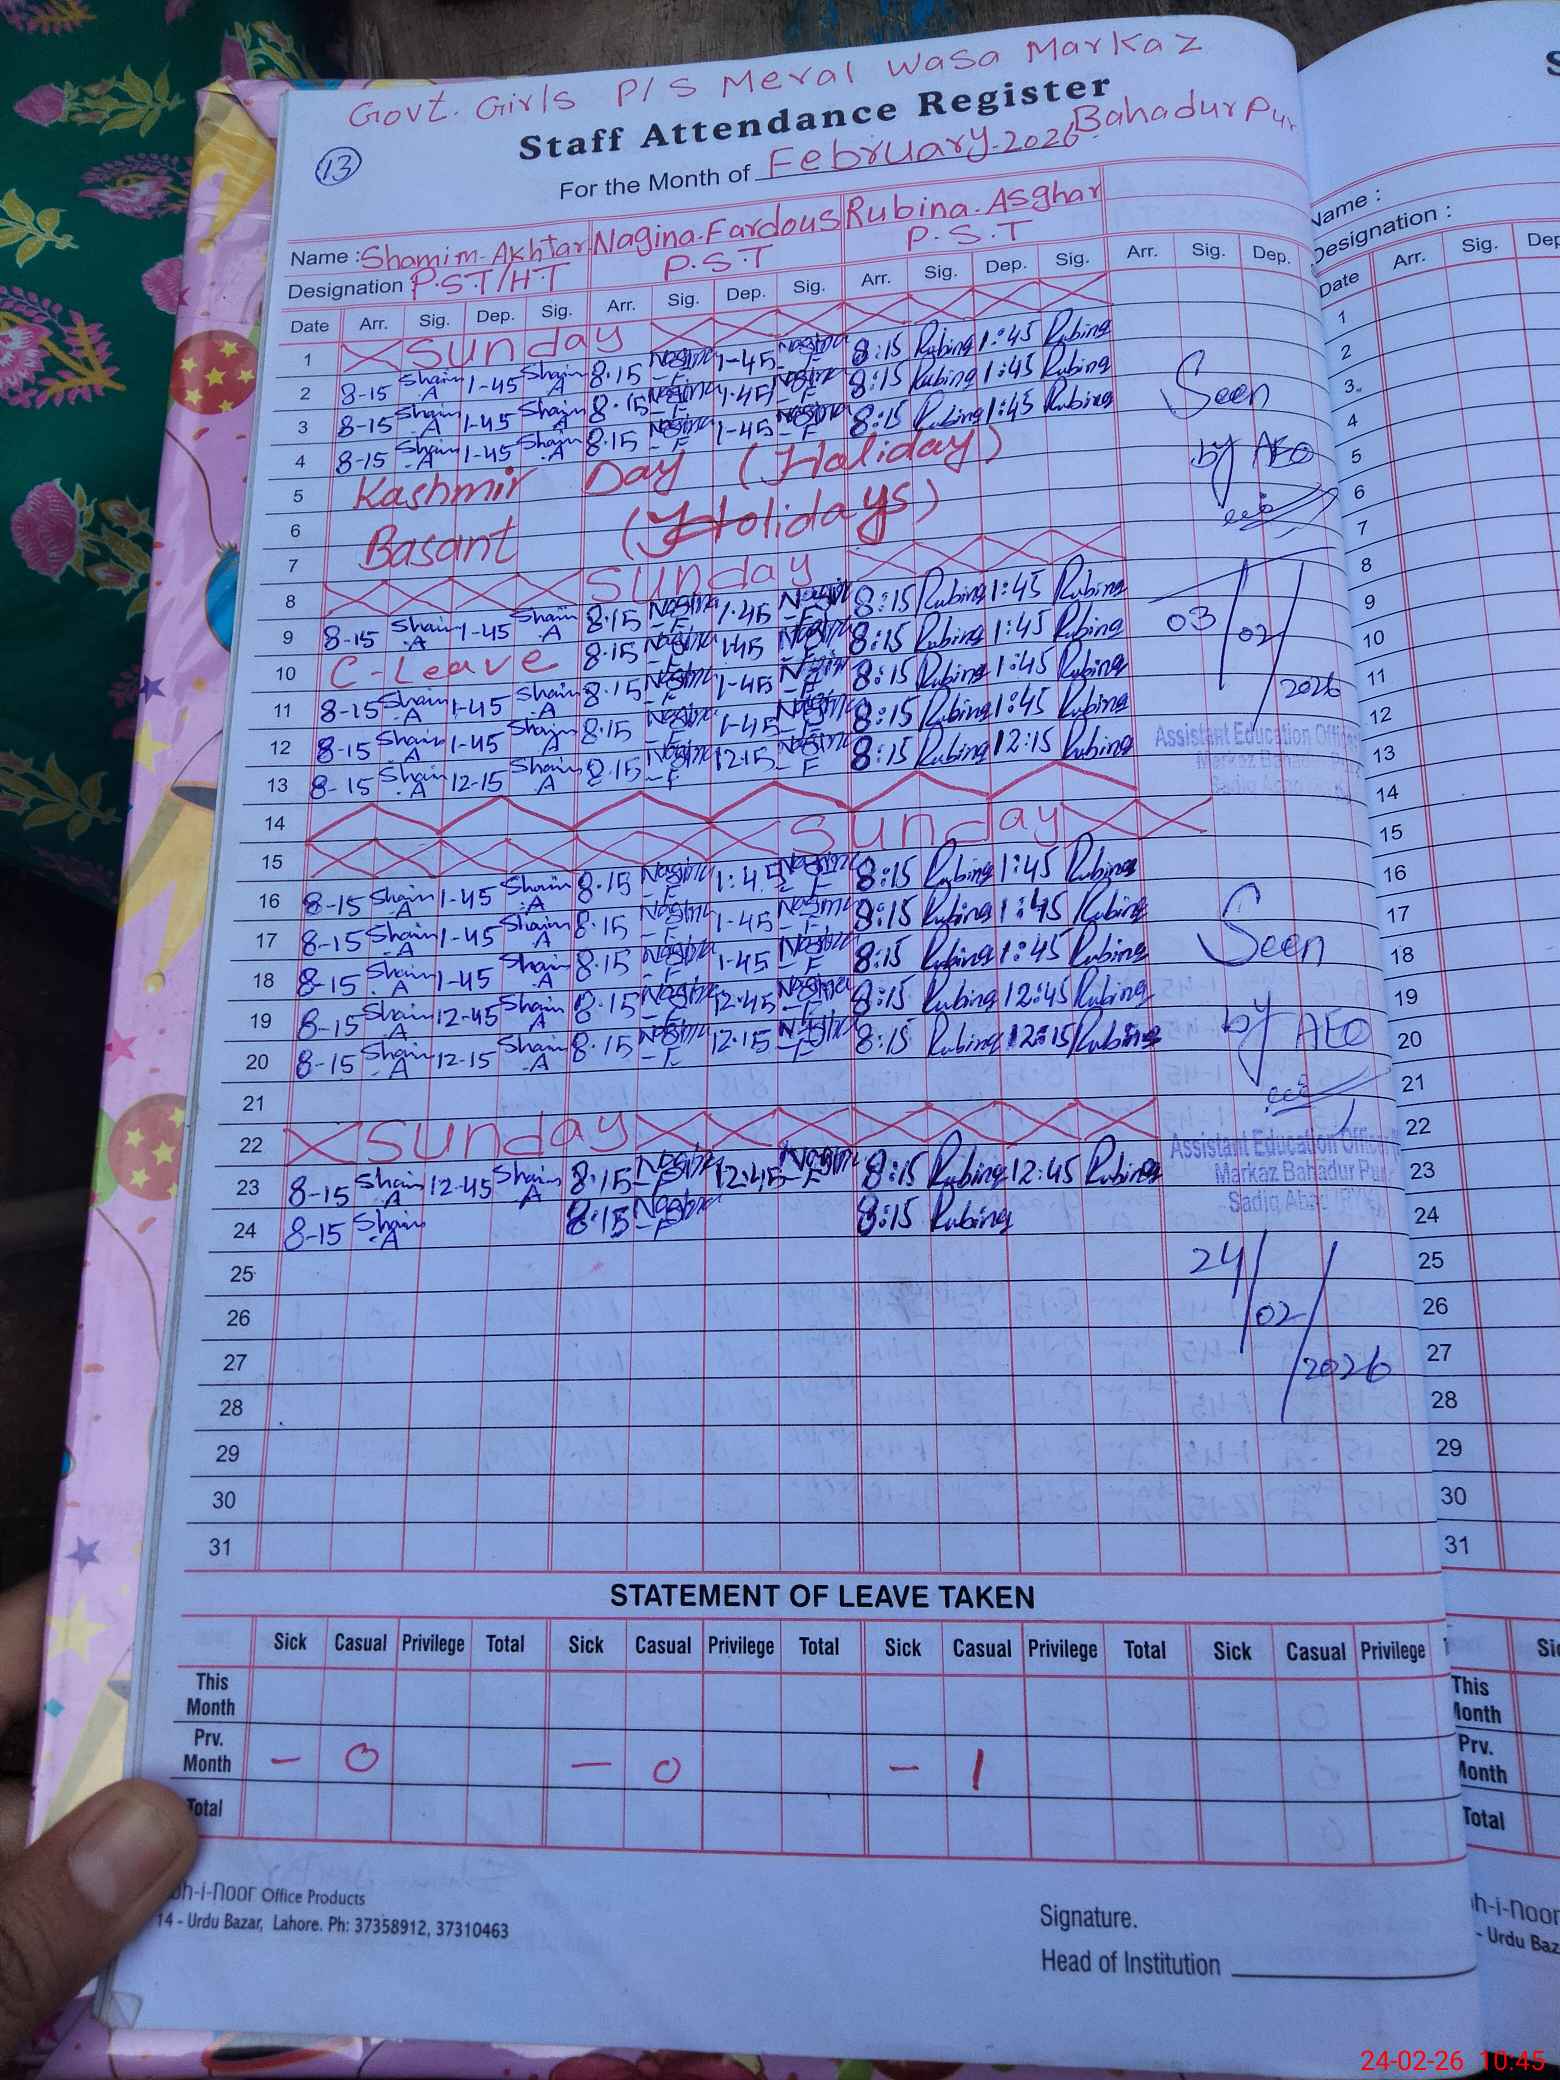 Govt. Girls P/S Meral Wasa Markaz
Bahadur Pur
Staff Attendance Register
13
For the Month of February-2026
Name : Shamim-Akhtar Nagina-Fardous Rubina-Asghar
Designation P.S.T/H.T P.S.T P.S.T
Date Arr. Sig. Dep. Sig. Arr. Sig. Dep. Sig. Arr. Sig. Dep. Sig. Arr. Sig. Dep.
1 Sunday
2 8-15 Sham A 1-45 Sham A 8.15 Nagina F 1-45 Nagina F 8:15 Rubina 1:45 Rubina
3 8-15 Sham A 1-45 Sham A 8.15 Nagina F 1.45 Nagina F 8:15 Rubina 1:45 Rubina
4 8-15 Sham A 1-45 Sham A 8.15 Nagina F 1-45 Nagina F 8:15 Rubina 1:45 Rubina
5 Kashmir Day (Holiday)
6 Basant (Holidays)
7
8 Sunday
9 8-15 Sham A 1-45 Sham A 8.15 Nagina F 1.45 Nagina F 8:15 Rubina 1:45 Rubina
10 C-Leave 8.15 Nagina F 1.45 Nagina F 8:15 Rubina 1:45 Rubina
11 8-15 Sham A 1-45 Sham A 8.15 Nagina F 1-45 Nagina F 8:15 Rubina 1:45 Rubina
12 8-15 Sham A 1-45 Sham A 8.15 Nagina F 1-45 Nagina F 8:15 Rubina 1:45 Rubina
13 8-15 Sham A 12-15 Sham A 8.15 Nagina F 12.15 Nagina F 8:15 Rubina 12:15 Rubina
14
15 Sunday
16 8-15 Sham A 1-45 Sham A 8.15 Nagina F 1:45 Nagina F 8:15 Rubina 1:45 Rubina
17 8-15 Sham A 1-45 Sham A 8.15 Nagina F 1-45 Nagina F 8:15 Rubina 1:45 Rubina
18 8-15 Sham A 1-45 Sham A 8.15 Nagina F 1-45 Nagina F 8:15 Rubina 1:45 Rubina
19 8-15 Sham A 12-45 Sham A 8.15 Nagina F 12.45 Nagina F 8:15 Rubina 12:45 Rubina
20 8-15 Sham A 12-15 Sham A 8.15 Nagina F 12.15 Nagina F 8:15 Rubina 12:15 Rubina
21
22 Sunday
23 8-15 Sham A 12-45 Sham A 8.15 Nagina F 12:45 Nagina F 8:15 Rubina 12:45 Rubina
24 8-15 Sham A 8.15 Nagina F 8:15 Rubina
25
26
27
28
29
30
31
Seen
by AEO
03/02/2026
Assistant Education Officer
Markaz Bahadur Pur
Sadiq Abad
Seen
by AEO
Assistant Education Officer
Markaz Bahadur Pur
Sadiq Abad (RYK)
24/02/2026
STATEMENT OF LEAVE TAKEN
Sick Casual Privilege Total Sick Casual Privilege Total Sick Casual Privilege Total Sick Casual Privilege
This Month
Prv. Month - 0 - 0 - 1
Total
oh-i-noor Office Products
14 - Urdu Bazar, Lahore. Ph: 37358912, 37310463
Signature.
Head of Institution
Name :
Designation :
Date Arr. Sig. Dep
1
2
3
4
5
6
7
8
9
10
11
12
13
14
15
16
17
18
19
20
21
22
23
24
25
26
27
28
29
30
31
This Month
Prv. Month
Total
h-i-noor
- Urdu Baz
24-02-26 10:45